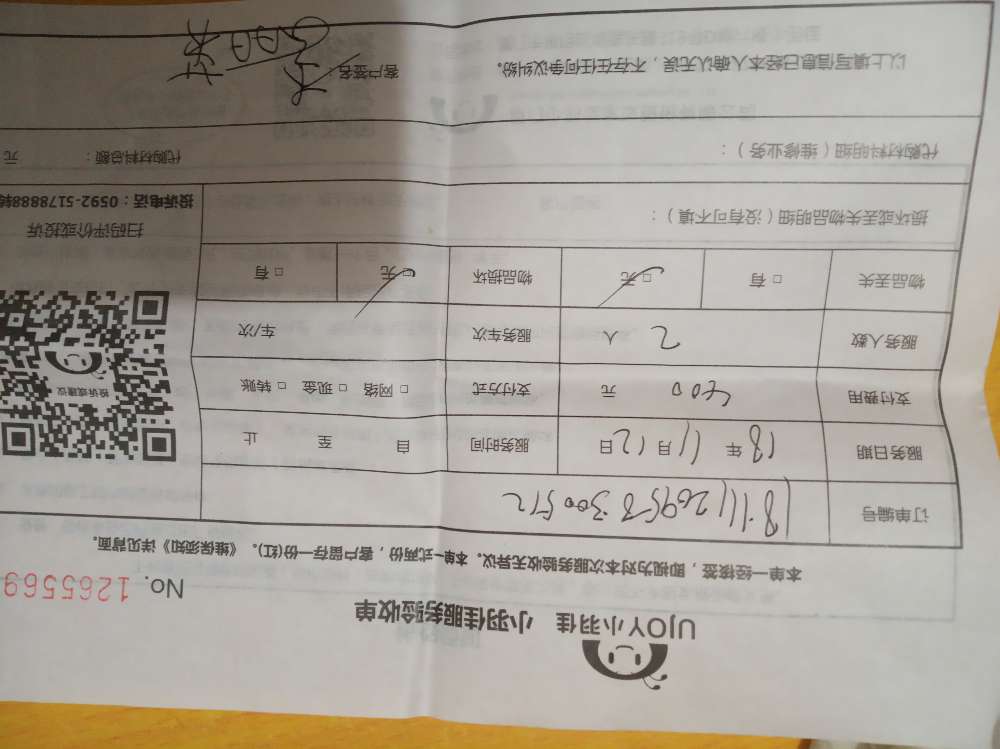 UJOY小羽佳 小羽佳服务验收单
No. 1265569
本单一经接签，即视为对本次服务验收无异议。本单一式两份，客户留存一份(红)。《维保须知》详见背面。
订单编号
服务日期 18 年 11 月 12 日 服务时间 自 至 止
支付费用 400 元 支付方式 □ 网络 □ 现金 □ 转账
服务人数 2 人 服务车次 车/次
物品丢失 □ 有 □ 无 物品损坏 □ 无 □ 有
损坏或丢失物品明细（没有可不填）：
投诉或建议
扫码评价或投诉
投诉电话：0592-5178888转
代购材料明细（维修业务）： 代购材料总额： 元
以上填写信息已经本人确认无误，不存在任何争议纠纷。 客户签名：